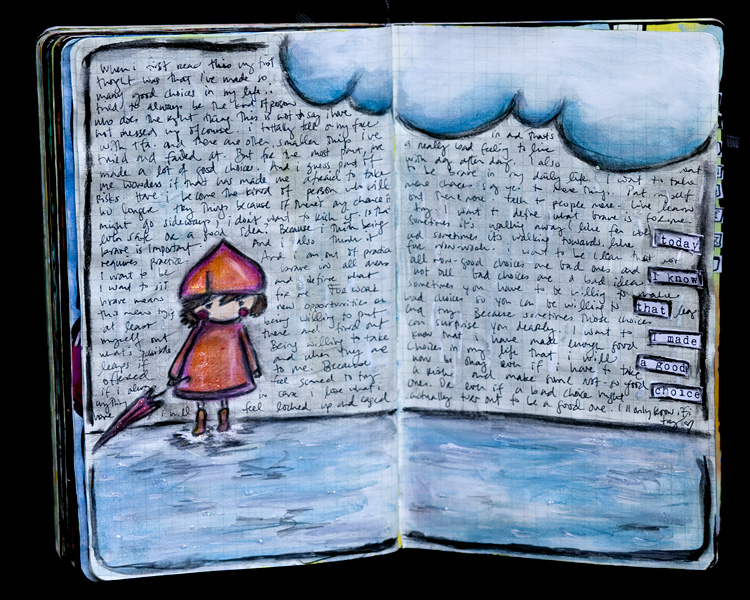 When i first read this my first
thought was that I've made so
many good choices in my life..
tried to always be the kind of person
who does the right thing. This is not to say i have
not messed up ofcourse. i totally fell on my face
with TFA. and there are other smaller things I've
tried and failed at. But for the most part, I've
made a lot of good choices. And i guess part of
me wonders if that was made me afraid to take
risks. Have i become the kind of person who will
no longer try things because if theres any chance it
might go sideways i don't want to risk it. Is that
even safe be a good idea? Because i think being
brave is important. And i also think it
requires practice. And i am out of practice
I want to be brave in all areas
i want to sit and define what
brave means for me. For work
this means trying new opportunities or
at least being willing to put
myself out there and find out
what's possible. Being willing to take
leaps if and when they are
offered to me. Because
if i always feel scared to try
anything in case i lose what i
have i will feel locked up and caged
in and thats
a really bad feeling to live
with day after day. I also want
to be brave in my daily life. I want to take
more chances. Say yes to more things. Put myself
out there more. talk to people more. Like Karen
says, I want to define what brave is for me.
sometimes it's walking away like for
and sometimes its walking towards. like
for now. i want to be clear that not
all non-good choices are bad ones and
not all bad choices are a bad idea.
sometimes you have to be willing to make
bad choices so you can be willing to leap
and try. Because sometimes those choices
can surprise you deeply. I want to
know that i have made enough good
choices in my life that i will
now be okay even if i have to take
a risk and make some not-so good
ones. Or even if a bad choice might
actually turn out to be a good one. I'll only know if i
try
today
I know
that
I made
a good
choice